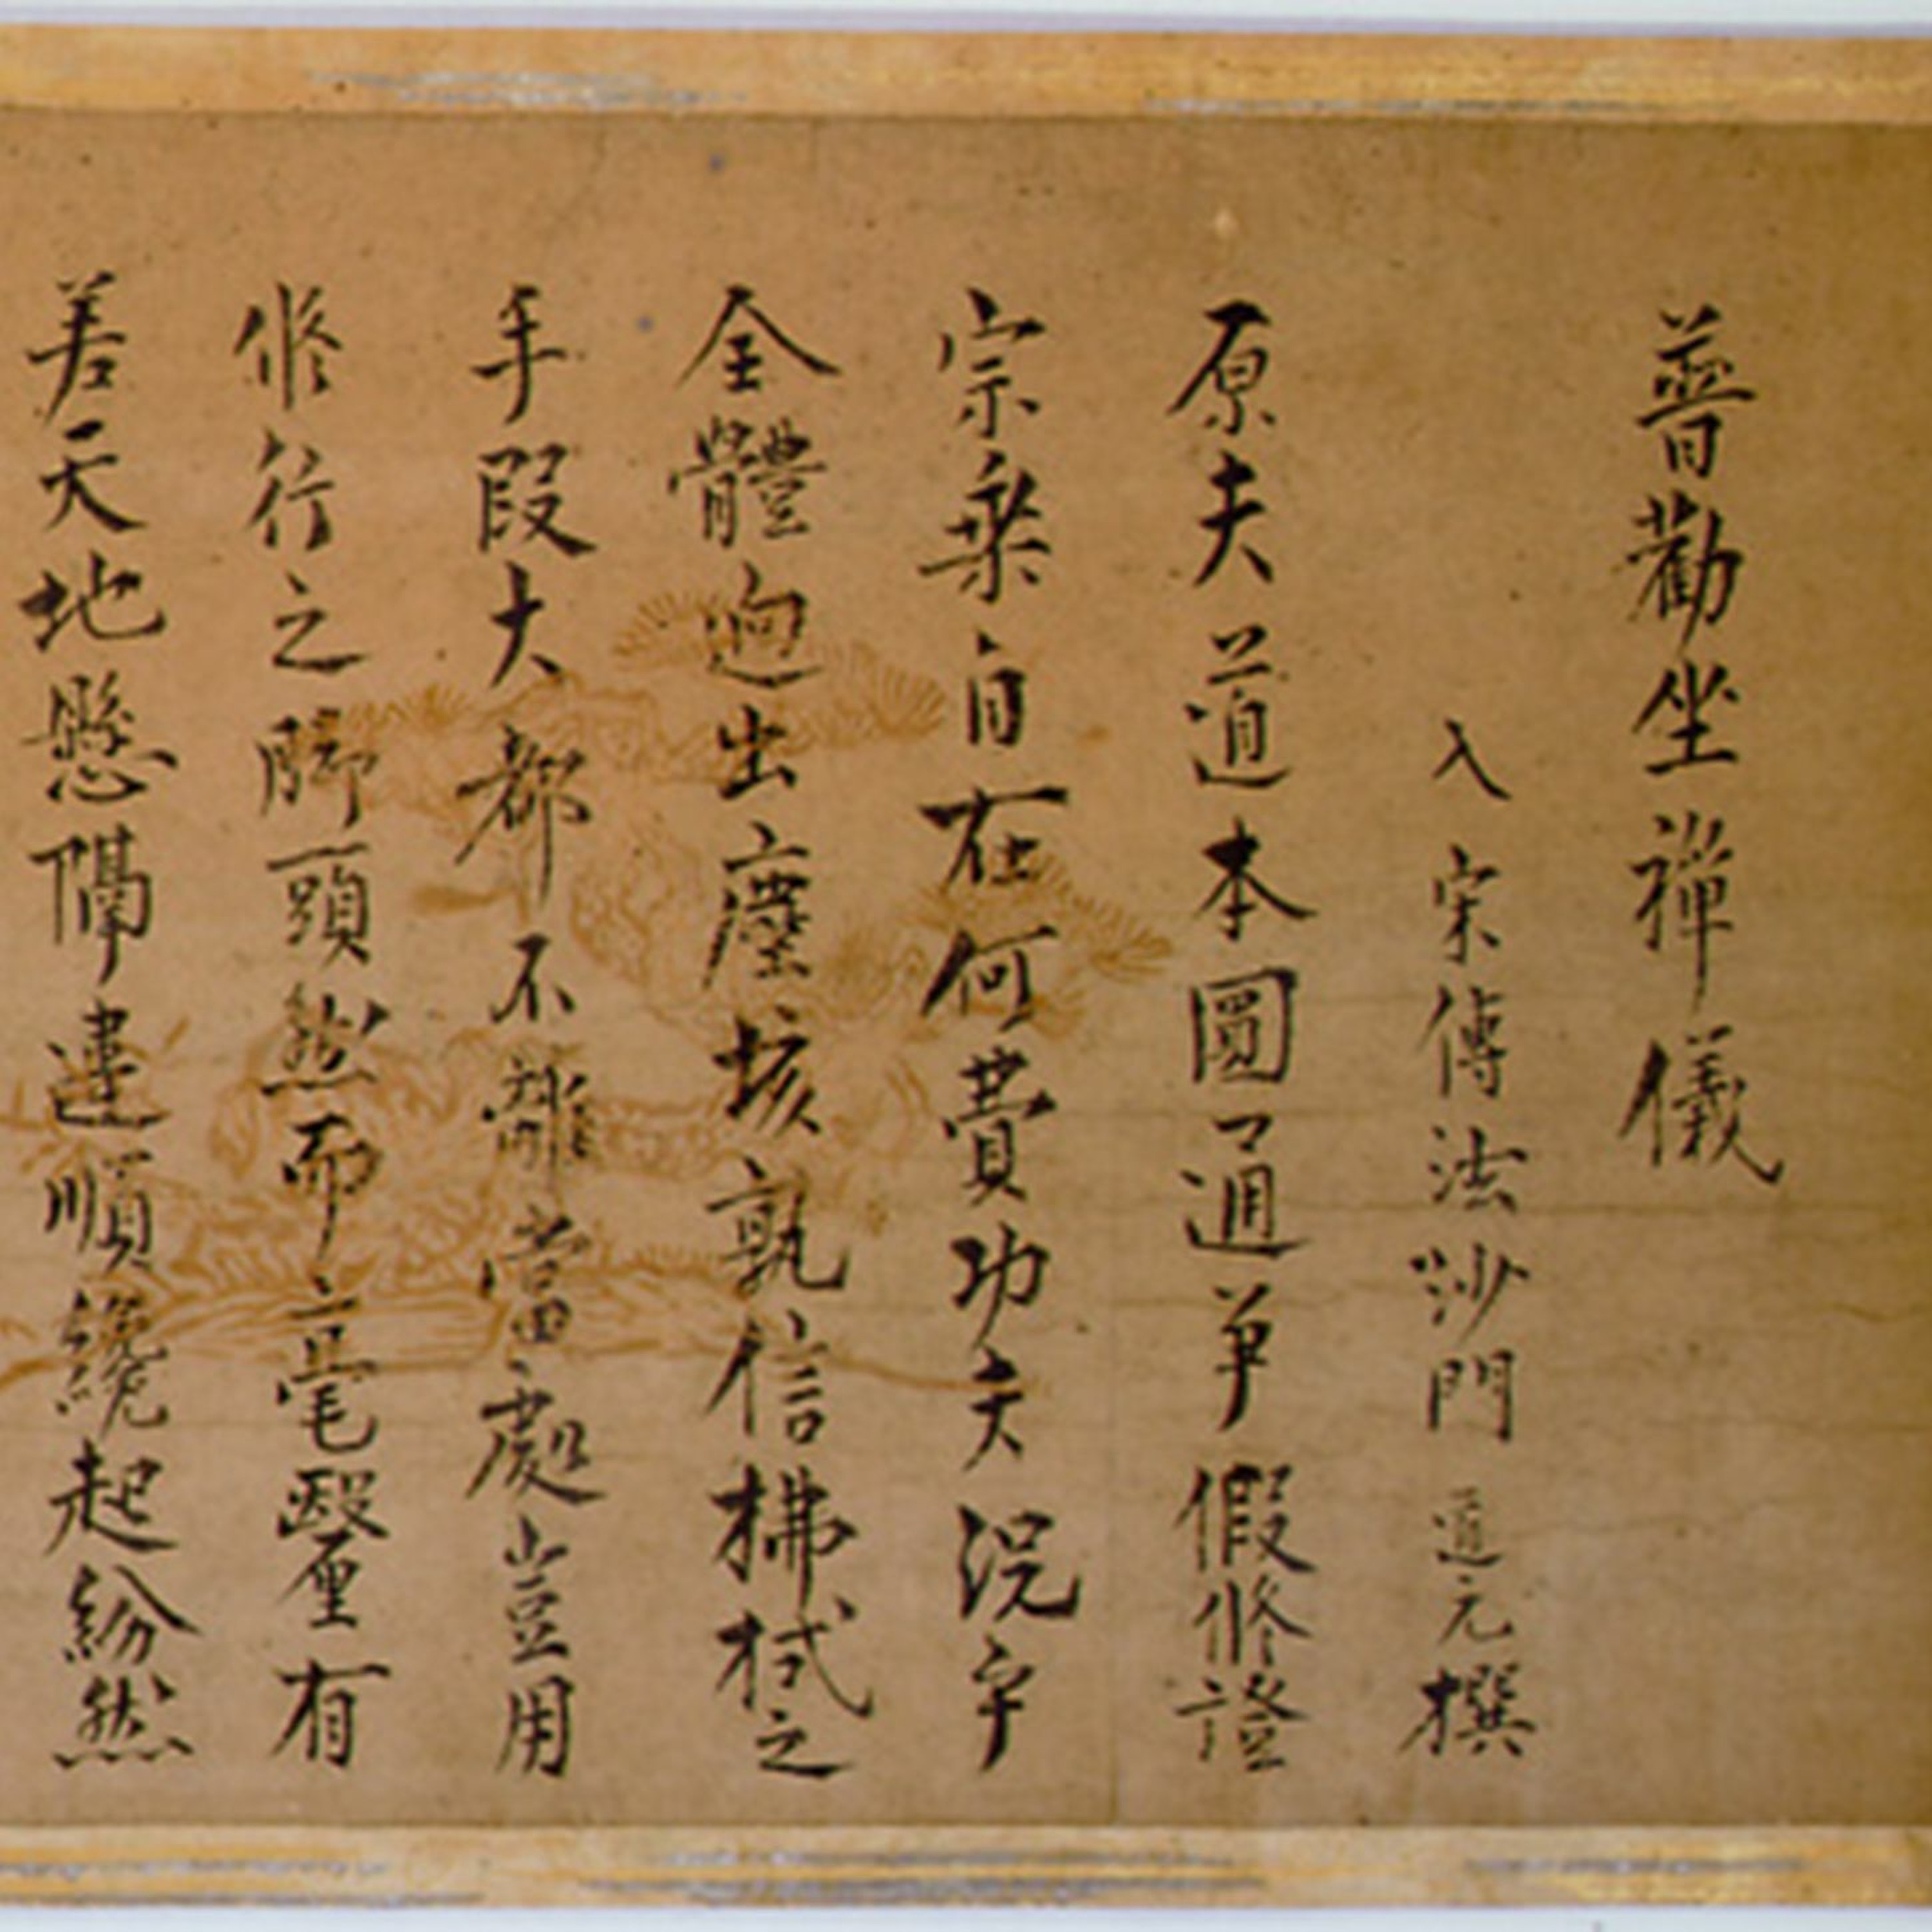 普勸坐禪儀
入宋傳法沙門道元撰
原夫道本圓通爭假修證
宗乘自在何費功夫況乎
全體迥出塵垓孰信拂拭之
手段大都不離當處豈用
修行之脚頭然而毫釐有
差天地懸隔違順纔起紛然